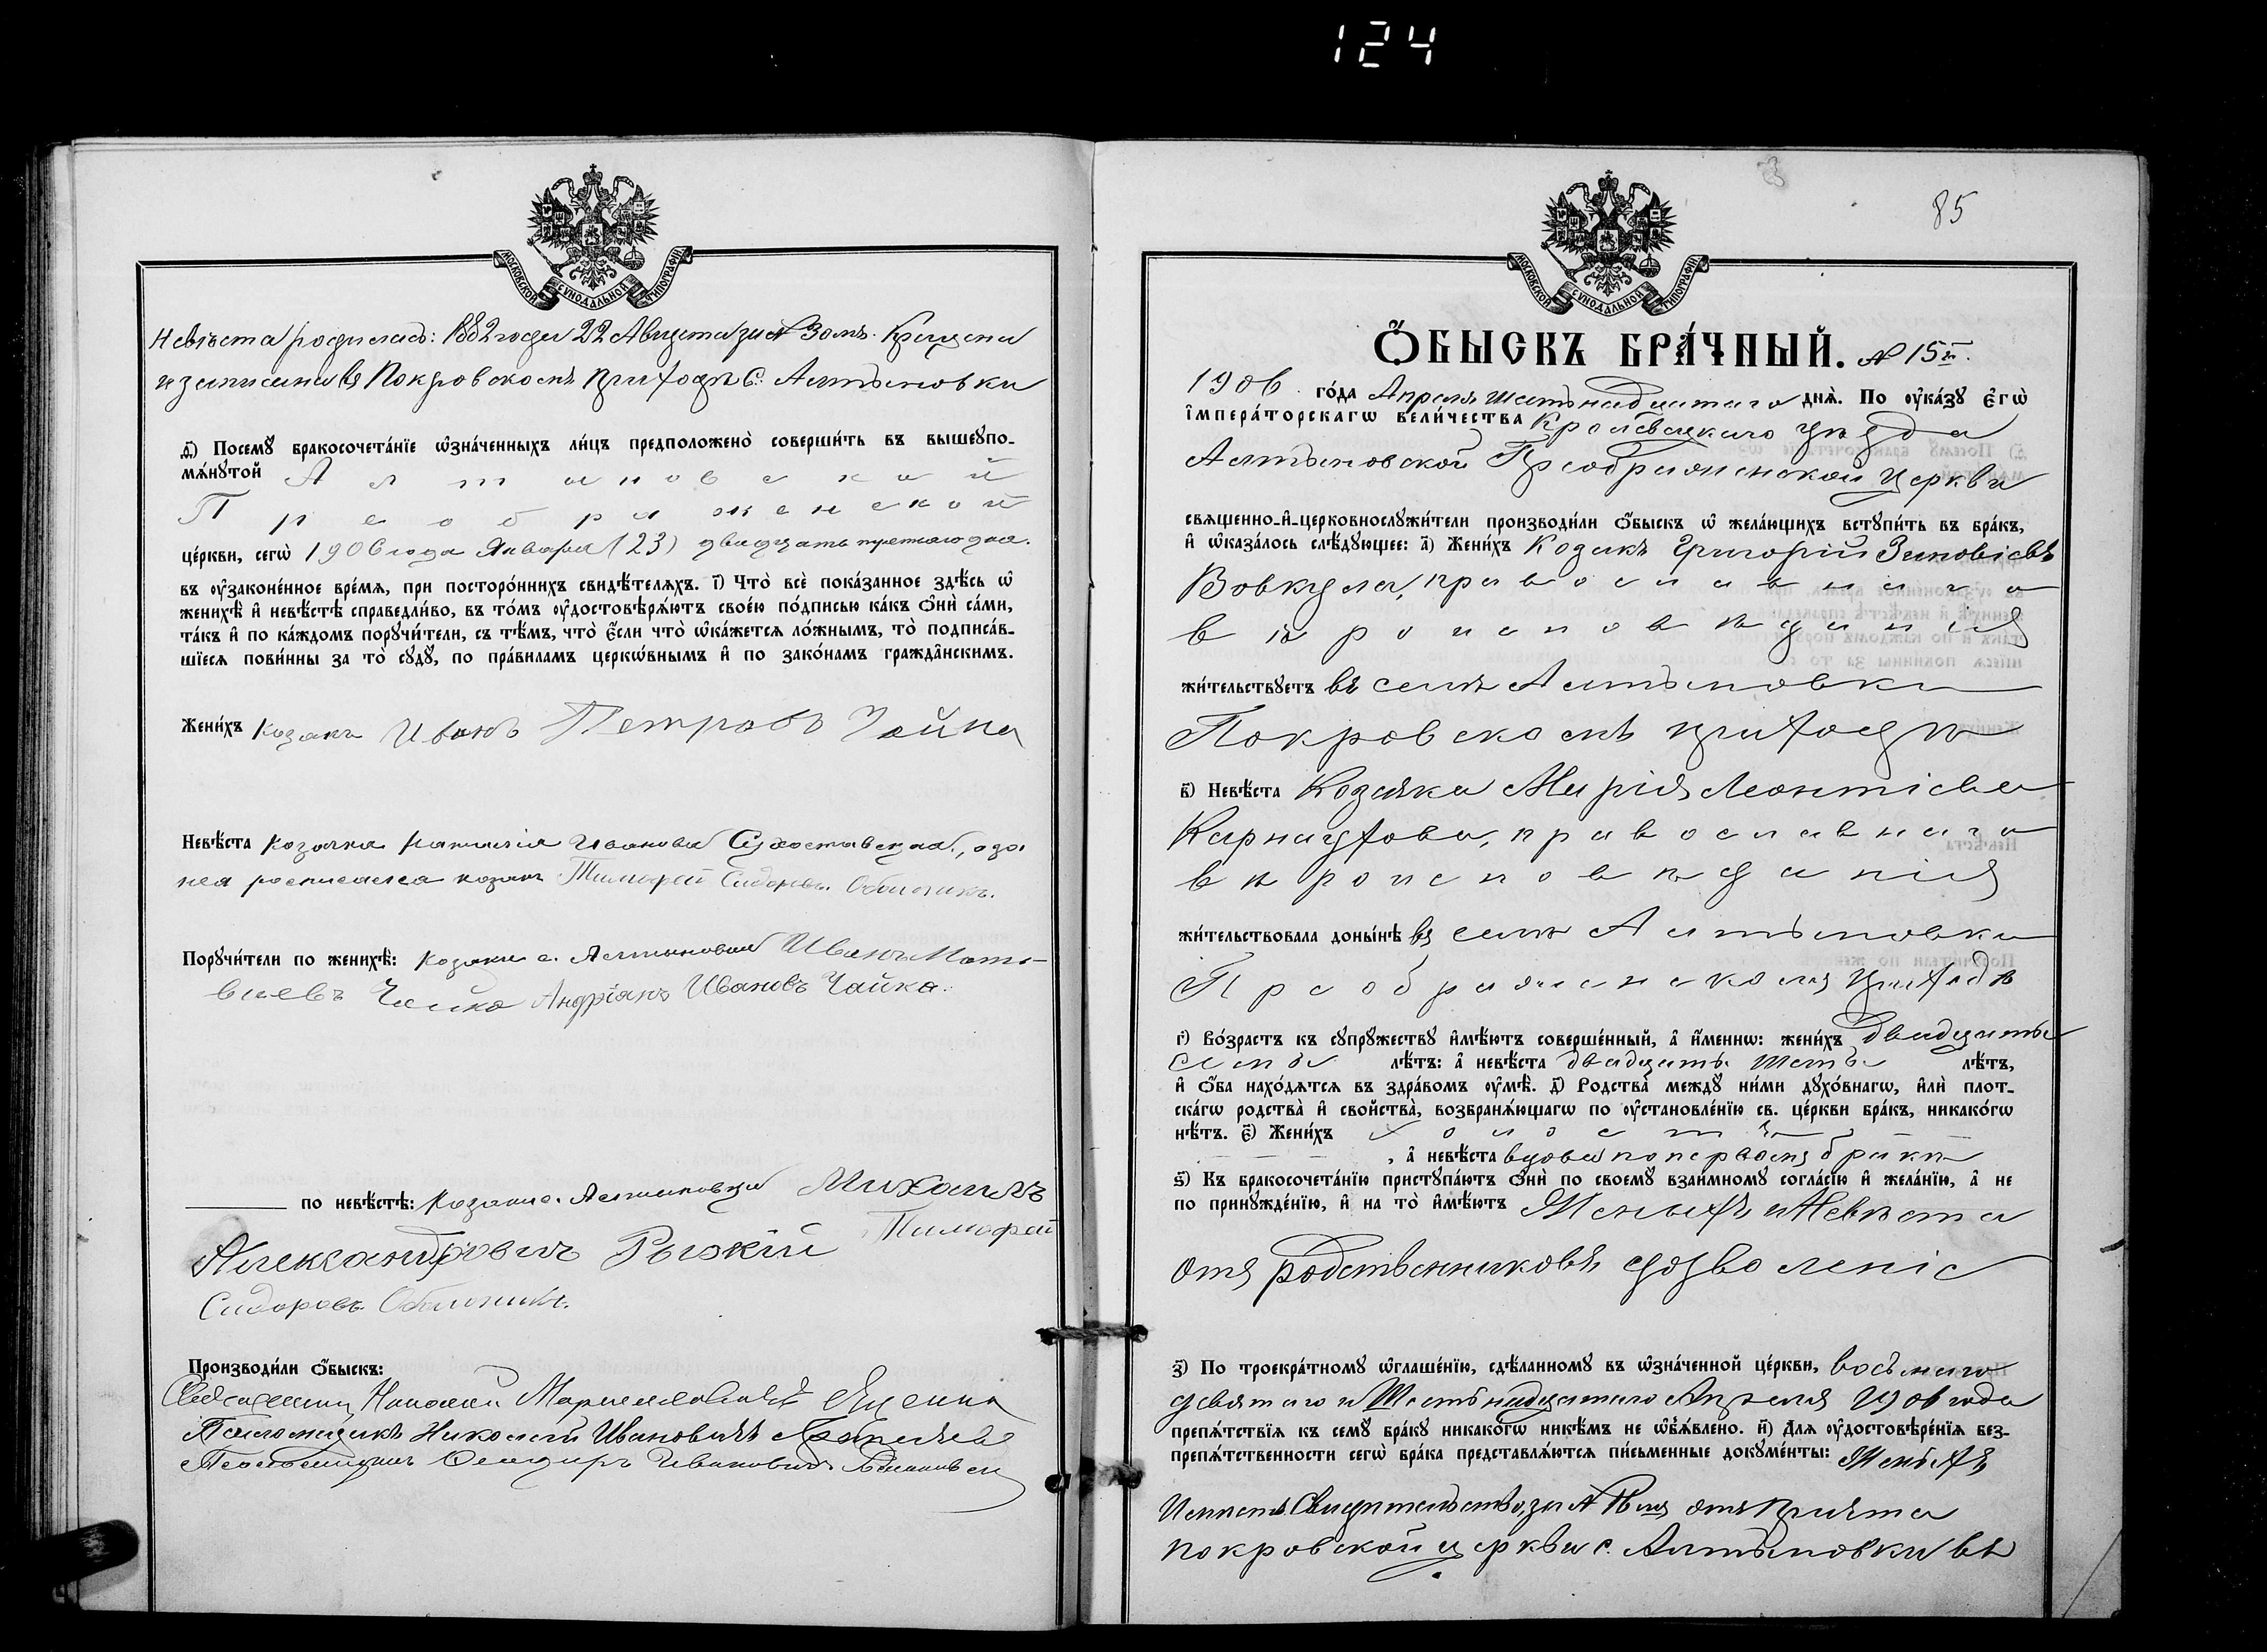 124
МОСКОВСКОЙ СУНОДАЛЬНОЙ ТИПОГРАФІИ
Невѣста родилась: 1882 года 22 Августа за № 30мъ. Крещена
и записана въ Покровскомъ приходѣ с. Алтыновки
д҃) Посемꙋ бракосочета́нїе ѡ҆зна́ченныхъ ли́цъ предположено̀ соверши́ть въ вышеꙋпо-
мѧ́нꙋтой Алтыновской
Преображенской
це́ркви, сегѡ̀ 1906 года Января (23) двадцать третьяго дня.
въ ѹ҆зако́ненное вре́мѧ, при посторо́ннихъ свидѣ́телѧхъ. і҃) Что̀ всѐ пока́занное здѣ́сь ѡ҆
женихѣ̀ и҆ невѣ́стѣ справедли́во, въ то́мъ ѹ҆достовѣрѧ́ютъ свое́ю по́дписью ка́къ ѻ҆нѝ са́ми,
та́къ и҆ по ка́ждомъ порꙋчи́тели, съ тѣ́мъ, что̀ є҆́сли что̀ ѡ҆ка́жетсѧ ло́жнымъ, то̀ подписа́в-
шїесѧ пови́нны за то̀ сꙋдꙋ̀, по пра́виламъ церкѡ́внымъ и҆ по зако́намъ гражда̂нскимъ.
Жени́хъ козакъ Иванъ Петровъ Чайка
Невѣ́ста козачка Наталія Иванова, а за
нея росписался козакъ Тимофей Сидоровъ
Порꙋчи́тели по женихѣ̀: козаки с. Алтыновки Иванъ Мат-
виевъ Чайка Андріянъ Ивановъ Чайка.
по невѣ́стѣ: козаки с. Алтыновки Михаилъ
Александровичъ Рыжкій Тимофей
Сидоровъ
Производи́ли ѻ҆́быскъ:
Священникъ
Псаломщикъ Николай Ивановичъ
Псаломщикъ Ивановичъ
85
МОСКОВСКОЙ СУНОДАЛЬНОЙ ТИПОГРАФІИ
Ѻ҆́БЫСКЪ БРА́ЧНЫЙ. № 15й.
1906 го́да Апреля шестьнадцатаго днѧ̀. По ѹ҆ка́зꙋ Є҆гѡ̀
І҆мпера́торскагѡ вели́чества Кролевецкаго уѣзда
Алтыновской Преображенской церкви
свѧщенно-и҆-церковнослꙋжи́тели производи́ли ѻ҆́быскъ ѡ҆ жела́ющихъ встꙋпи́ть въ бра́къ,
и҆ ѡ҆каза́лось слѣ́дꙋющее: а҃) Жени́хъ Козакъ Григорій Зиновіевъ
Вовкула, православнаго
вѣроисповѣданія
жи́тельствꙋетъ въ селѣ Алтыновки
Покровскомъ приходѣ
в҃) Невѣ́ста Козачка Марія Леонтіева
Карнаухова, православнаго
вѣроисповѣданія
жи́тельствовала доны́нѣ въ селѣ Алтыновки
Преображенскомъ приходѣ
г҃) Во́зрастъ къ сꙋпрꙋ́жествꙋ и҆мѣ́ютъ соверше́нный, а҆ и҆́меннѡ: жени́хъ двадцать
семь лѣ́тъ: а҆ невѣ́ста двадцать шесть лѣ́тъ,
и҆ ѻ҆́ба нахо́дѧтсѧ въ здра́вомъ ѹ҆мѣ̀. д҃) Родства̀ междꙋ̀ ни́ми дꙋхо́внагѡ, и҆лѝ плот-
ска́гѡ родства̀ и҆ сво́йства̀, возбранѧ́ющагѡ по ѹ҆становле́нїю св. це́ркви бра́къ, никако́гѡ
нѣ́тъ. є҃) Жени́хъ холостъ
, а҆ невѣ́ста вдова по первомъ бракѣ
ѕ҃) Къ бракосочета́нїю пристꙋпа́ютъ ѻ҆нѝ по своемꙋ̀ взаи́мномꙋ согла́сїю и҆ жела́нїю, а҆ не
по принꙋжде́нїю, и҆ на то̀ и҆мѣ́ютъ Женихъ и Невѣста
отъ родственниковъ дозволеніе
з҃) По троекра́тномꙋ ѡ҆глаше́нїю, сдѣ́ланномꙋ въ ѡ҆зна́ченной це́ркви, восьмаго
девятаго и шестьнадцатаго Апреля 1906 года
препѧ́тствїѧ къ семꙋ̀ бра́кꙋ никако́гѡ никѣ́мъ не ѡ҆б̾ѧ́влено. и҃) Длѧ ѹ҆достовѣре́нїѧ без-
препѧ́тственности сегѡ̀ бра́ка представлѧ́ютсѧ пи́сьменные докꙋме́нты: Женихъ
Свидѣтельство, за № отъ причта
покровской церкви с. Алтыновки въ